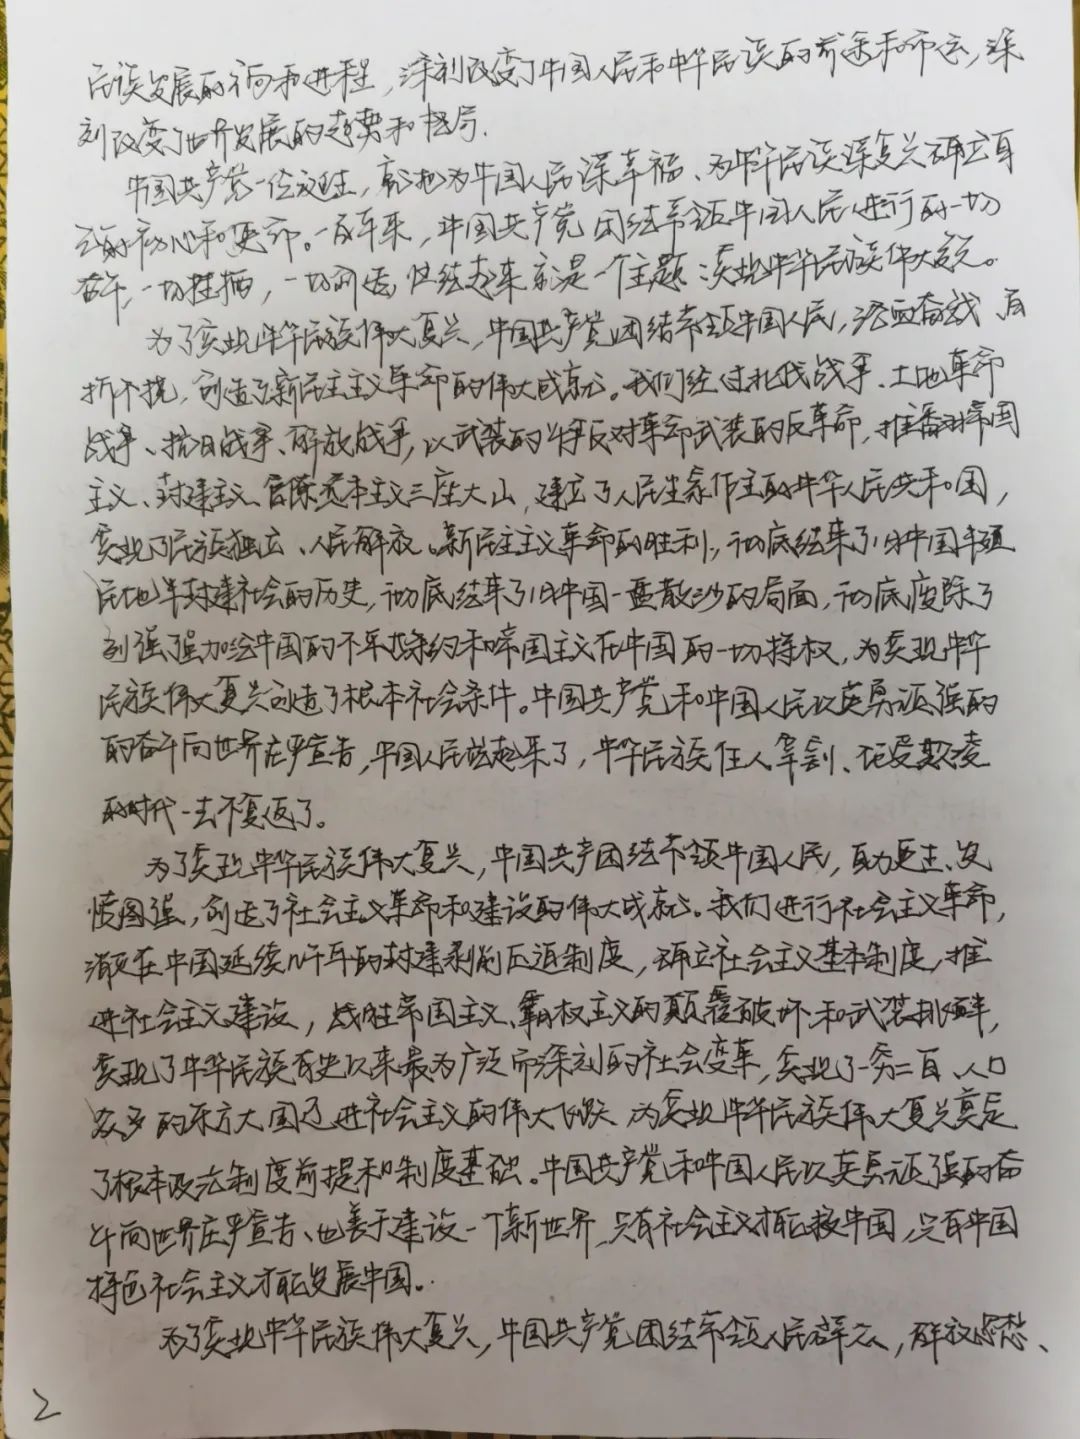 民族发展的方向和进程，深刻改变了中国人民和中华民族的前途和命运，深
刻改变了世界发展的趋势和格局.
中国共产党一经诞生，就把为中国人民谋幸福、为中华民族谋复兴确立为自
己的初心和使命。一百年来，中国共产党团结带领中国人民进行的一切
奋斗，一切牺牲，一切创造 归结起来就是一个主题：实现中华民族伟大复兴。
为了实现中华民族伟大复兴，中国共产党团结带领中国人民，浴血奋战 百
折不挠，创造了新民主主义革命的伟大成就。我们经过北伐战争、土地革命
战争、抗日战争、解放战争，以武装的革命反对革命武装的反革命，推翻帝国
主义、封建主义、官僚资本主义三座大山，建立了人民当家作主的中华人民共和国，
实现了民族独立、人民解放。新民主主义革命的胜利，彻底结束了旧中国半殖
民地半封建社会的历史，彻底结束了旧中国一盘散沙的局面，彻底废除了
列强强加给中国的不平等条约和帝国主义在中国的一切特权，为实现中华
民族伟大复兴创造了根本社会条件。中国共产党和中国人民以英勇顽强的
的奋斗向世界庄严宣告，中国人民站起来了，中华民族任人宰割、饱受欺凌
的时代一去不复返了。
为了实现中华民族伟大复兴，中国共产团结带领中国人民，自力更生、发
愤图强，创造了社会主义革命和建设的伟大成就。我们进行社会主义革命，
消灭在中国延续几千年的封建剥削压迫制度，确立社会主义基本制度，推
进社会主义建设，战胜帝国主义、霸权主义的颠覆破坏和武装挑衅，
实现了中华民族有史以来最为广泛而深刻的社会变革，实现了一穷二白、人口
众多的东方大国迈进社会主义的伟大飞跃 为实现中华民族伟大复兴奠定
了根本政治制度前提和制度基础。中国共产党和中国人民以英勇顽强的奋
斗向世界庄严宣告、也善于建设一个新世界，只有社会主义才能救中国，只有中国
特色社会主义才能发展中国。
为了实现中华民族伟大复兴，中国共产党团结带领人民群众，解放思想、
2